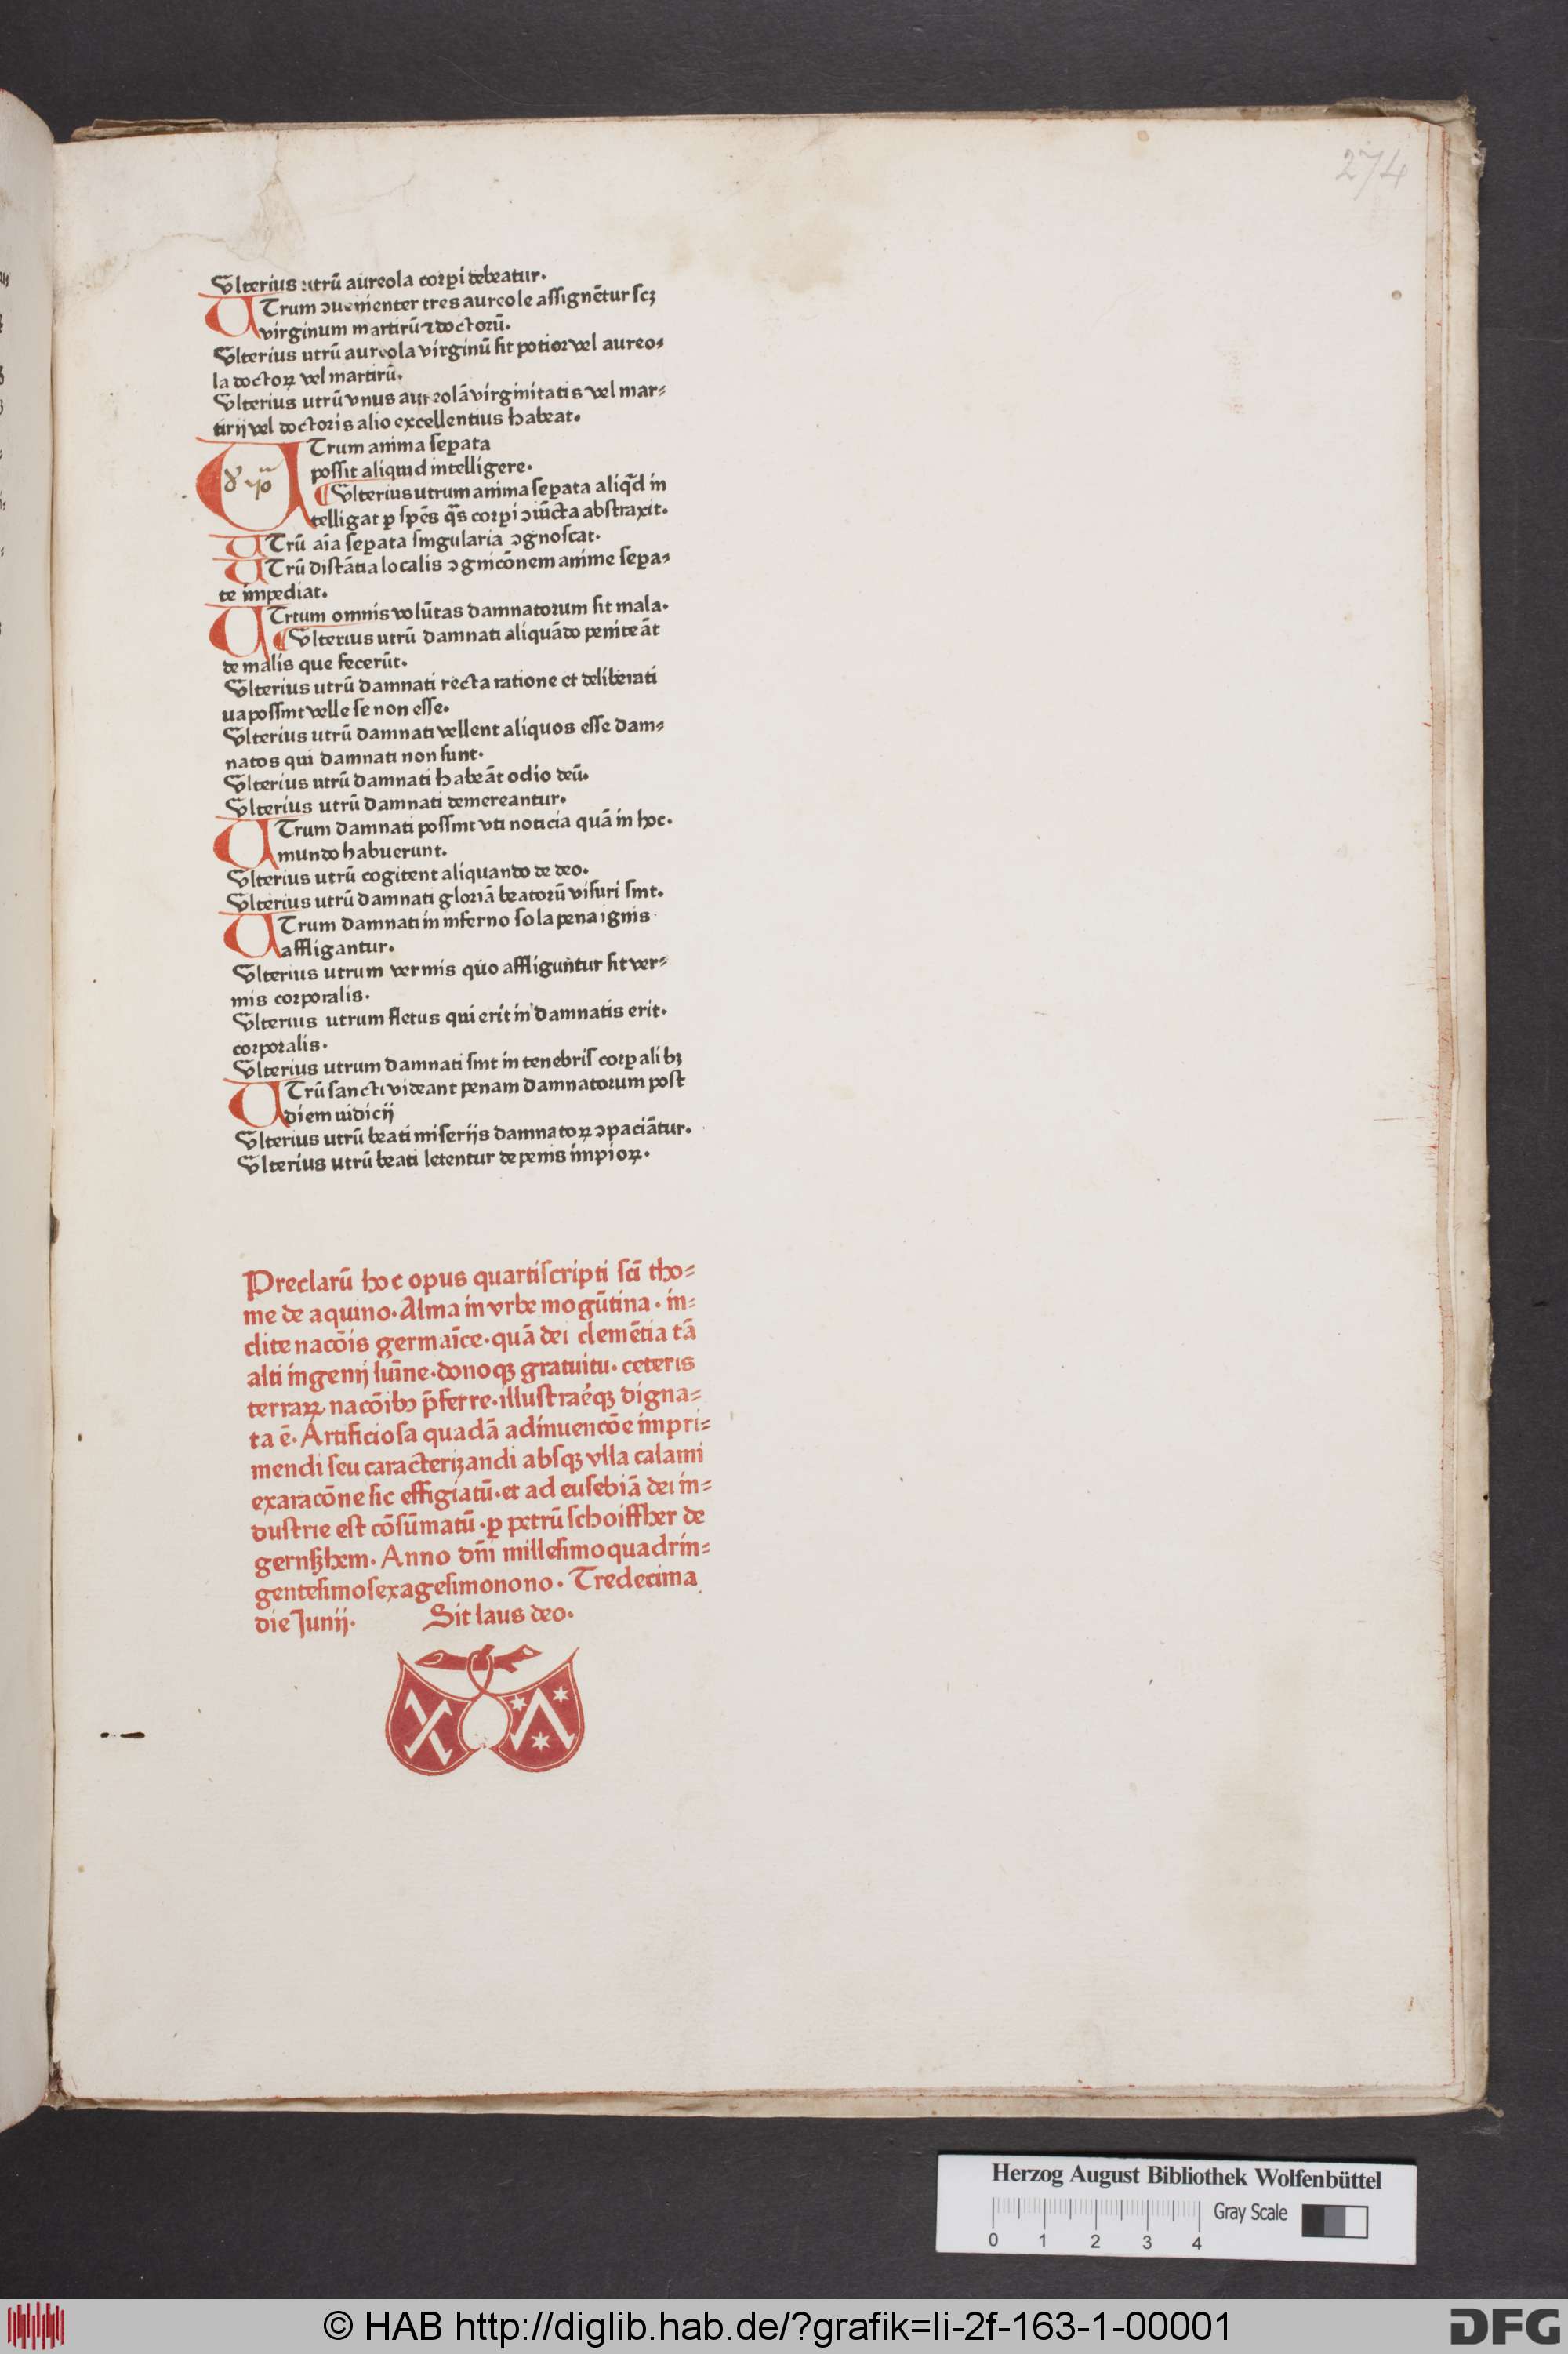 274
Ulterius utrū aureola corꝑi debeatur.
UTrum ↄuenienter tres aureole assignētur scꝫ
virginum martirū ⁊ doctorū.
Ulterius utrū aureola virginū sit potior vel aureo⸗
la doctoꝝ vel martirū.
Ulterius utrū vnus aureolā virginitatis vel mar⸗
tirij vel doctoris alio excellentius habeat.
UTrum anima seꝑata
possit aliquid intelligere.
Ulterius utrum anima seꝑata aliq̄d in
telligat ꝑ spēs q̄s corꝑi ↄiūcta abstraxit.
UTrū aīa seꝑata singularia ↄgnoscat.
UTrū distātia localis ↄgnicōnem anime seꝑa⸗
te impediat.
UTrtum omnis volūtas damnatorum sit mala.
Ulterius utrū damnati aliquādo peniteāt
de malis que fecerūt.
Ulterius utrū damnati recta ratione et deliberati
ua possint velle se non esse.
Ulterius utrū damnati vellent aliquos esse dam⸗
natos qui damnati non sunt.
Ulterius utrū damnati habeāt odio deū.
Ulterius utrū damnati demereantur.
UTrum damnati possint vti noticia quā in hoc.
mundo habuerunt.
Ulterius utrū cogitent aliquando de deo.
Ulterius utrū damnati gloriā beatorū visuri sint.
UTrum damnati in inferno sola pena ignis
affligantur.
Ulterius utrum vermis quo affliguntur sit ver⸗
mis corporalis.
Ulterius utrum fletus qui erit in damnatis erit.
corporalis.
Ulterius utrum damnati sint in tenebris corꝑalibꝫ
UTrū sancti videant penam damnatorum post
diem iudicij
Ulterius utrū beati miserijs damnatoꝝ ↄpaciātur.
Ulterius utrū beati letentur de penis impioꝝ.
Preclarū hoc opus quarti scripti scī tho⸗
me de aquino. Alma in vrbe mogūtina. in⸗
clite nacōis germaīce. quā dei clemētia tā
alti ingenij luīne. donoqꝫ gratuitu. ceteris
terraꝝ nacōibꝫ p̄ferre. illustraēqꝫ digna⸗
ta ē. Artificiosa quadā adinuencōe impri⸗
mendi seu caracterizandi absqꝫ vlla calami
exaracōne sic effigiatū. et ad eusebiā dei in⸗
dustrie est cōsūmatū. ꝑ petrū schoiffher de
gernsꝫhem. Anno dn̄i millesimoquadrin⸗
gentesimosexagesimonono. Tredecima
die Junij. Sit laus deo.
Herzog August Bibliothek Wolfenbüttel
Gray Scale
0 1 2 3 4
© HAB http://diglib.hab.de/?grafik=li-2f-163-1-00001
DFG